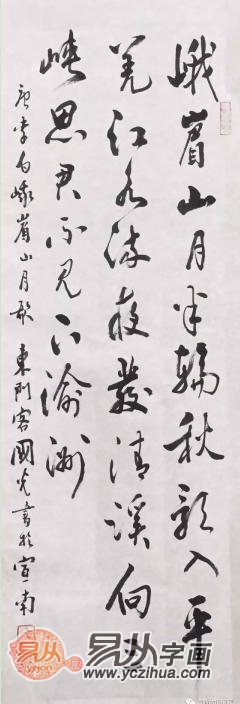 峨眉山月半轮秋影入平
羌江水流夜发清溪向三
峡思君不见下渝州
唐李白峨眉山月歌 東門客國光書於宣南
易从字画
yicjon
易从字画
www.yczihua.com